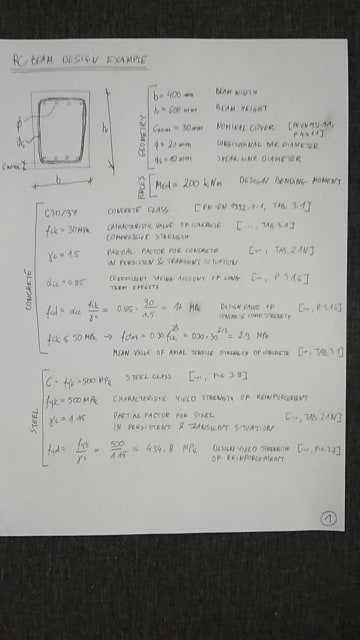 RC BEAM DESIGN EXAMPLE
GEOMETRY
b = 400 mm BEAM WIDTH
h = 600 mm BEAM HEIGHT
Cnom = 30mm NOMINAL COVER
ϕ = 20 mm LONGITUDINAL BAR DIAMETER
ϕs = 10 mm SHEAR LINK DIAMETER
ϕ
ϕs
Cnom
h
b
FORCES
Med = 200 kNm DESIGN BENDING MOMENT
CONCRETE
C30/37 CONCRETE CLASS [PN-EN 1992-1-1, TAB. 3.1]
fck = 30 MPa CHARACTERISTIC VALUE OF CONCRETE [..., TAB. 3.1]
COMPRESSIVE STRENGTH
γc = 1.5 PARTIAL FACTOR FOR CONCRETE [..., TAB. 2.1N]
IN PERSISTENT & TRANSIENT SITUATION
αcc = 0.85 COEFFICIENT TAKING ACCOUNT OF LONG [..., P 3.1.6]
TERM EFFECTS
fcd = αcc fck/γc = 0.85 · 30/1.5 = 17 MPa DESIGN VALUE OF [..., P 3.1.6]
CONCRETE COMP. STRENGTH
fck ≤ 50 MPa → fctm = 0.30 fck^2/3 = 0.30 · 30^2/3 = 2.9 MPa
MEAN VALUE OF AXIAL TENSILE STRENGTH OF CONCRETE [..., TAB 3.1]
STEEL
C - fyk = 500 MPa STEEL CLASS [..., FIG 3.8]
fyk = 500 MPa CHARACTERISTIC YIELD STRENGTH OF REINFORCEMENT
γs = 1.15 PARTIAL FACTOR FOR STEEL [..., TAB. 2.1N]
IN PERSISTENT & TRANSIENT SITUATION
fyd = fyk/γs = 500/1.15 = 434.8 MPa DESIGN YIELD STRENGTH
OF REINFORCEMENT
1